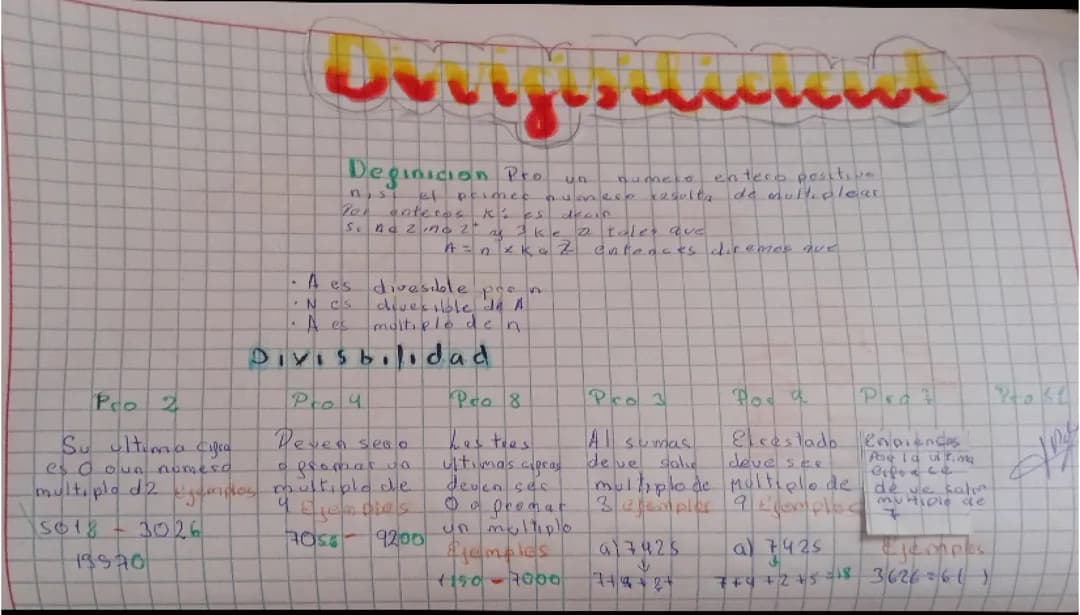 Divisilidad
Definicion Pro un numero entero positivo
n, si el primer numero resulta de multiplicar
Por enteros K: es decir
tales que
A = n x k a Z entonces diremos que
· A es divesible por n
· N es divesible de A
· A es multiplo de n
Divisbilidad
Pro 2
Su ultima cifra
es 0 o un numero
multiplo d2 Ejemplos
5018 - 3026
19970
Pro 4
Deven ser 0
o formar un
multiplo de
4 Ejemplos
7056 - 9200
Pro 8
Las tres
ultimas cifras
deven ser
0 o formar
un multiplo
Ejemplos
- 7000
Pro 3
Al sumar
deve salir
multiplo de
3 Ejemplos
a) 7425
7+4+2+
Por 9
El resultado
deve ser
Multiplo de
9 Ejemplos
a) 7425
7+4+2+5=18
Por la ultima
de ve salir
multiplo de
7
Ejemplos
3626=6( )